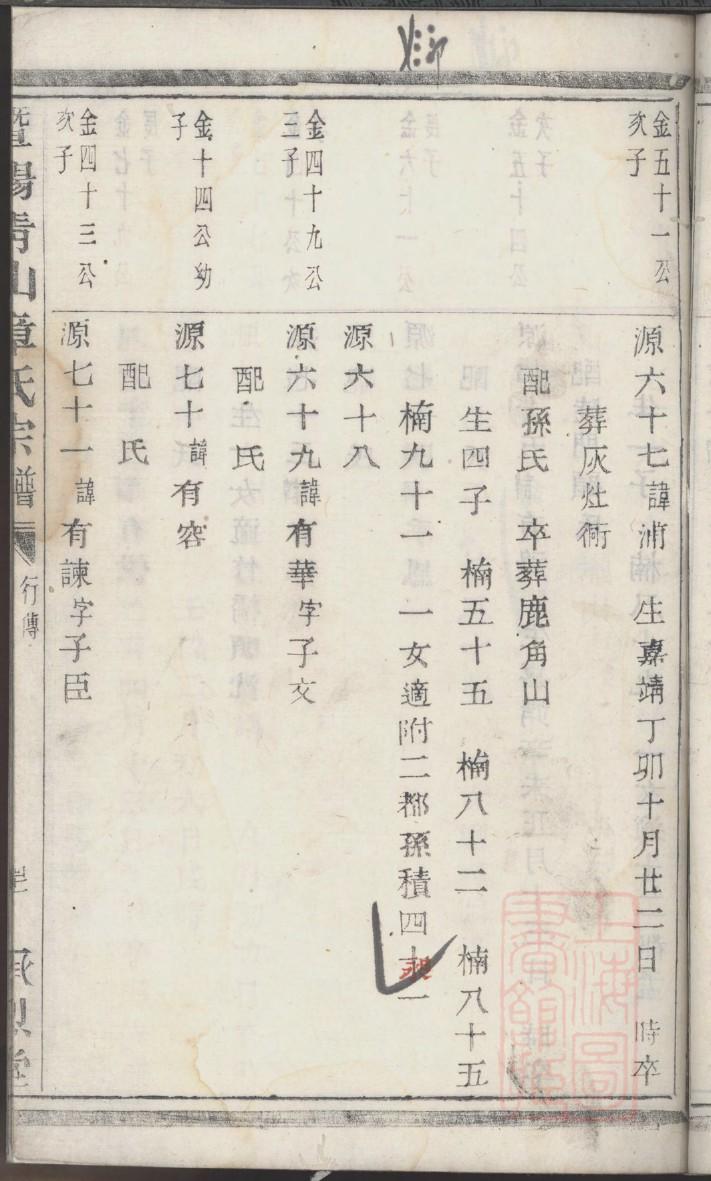 金五十一公
次子
源六十七諱浦　生嘉靖丁卯十月廿二日　時卒
葬灰灶衕
配孫氏　卒葬鹿角山
生四子　楠五十五　楠八十二　楠八十五
楠九十一　一女適附二都孫積四十一
源六十八
金四十九公
三子
源六十九諱有華字子文
配　氏
金十四公幼
子
源七十諱有容
配　氏
金四十三公
次子
源七十一諱有諫字子臣
暨陽青山章氏宗譜
行傳
承恩堂
上海圖書館藏